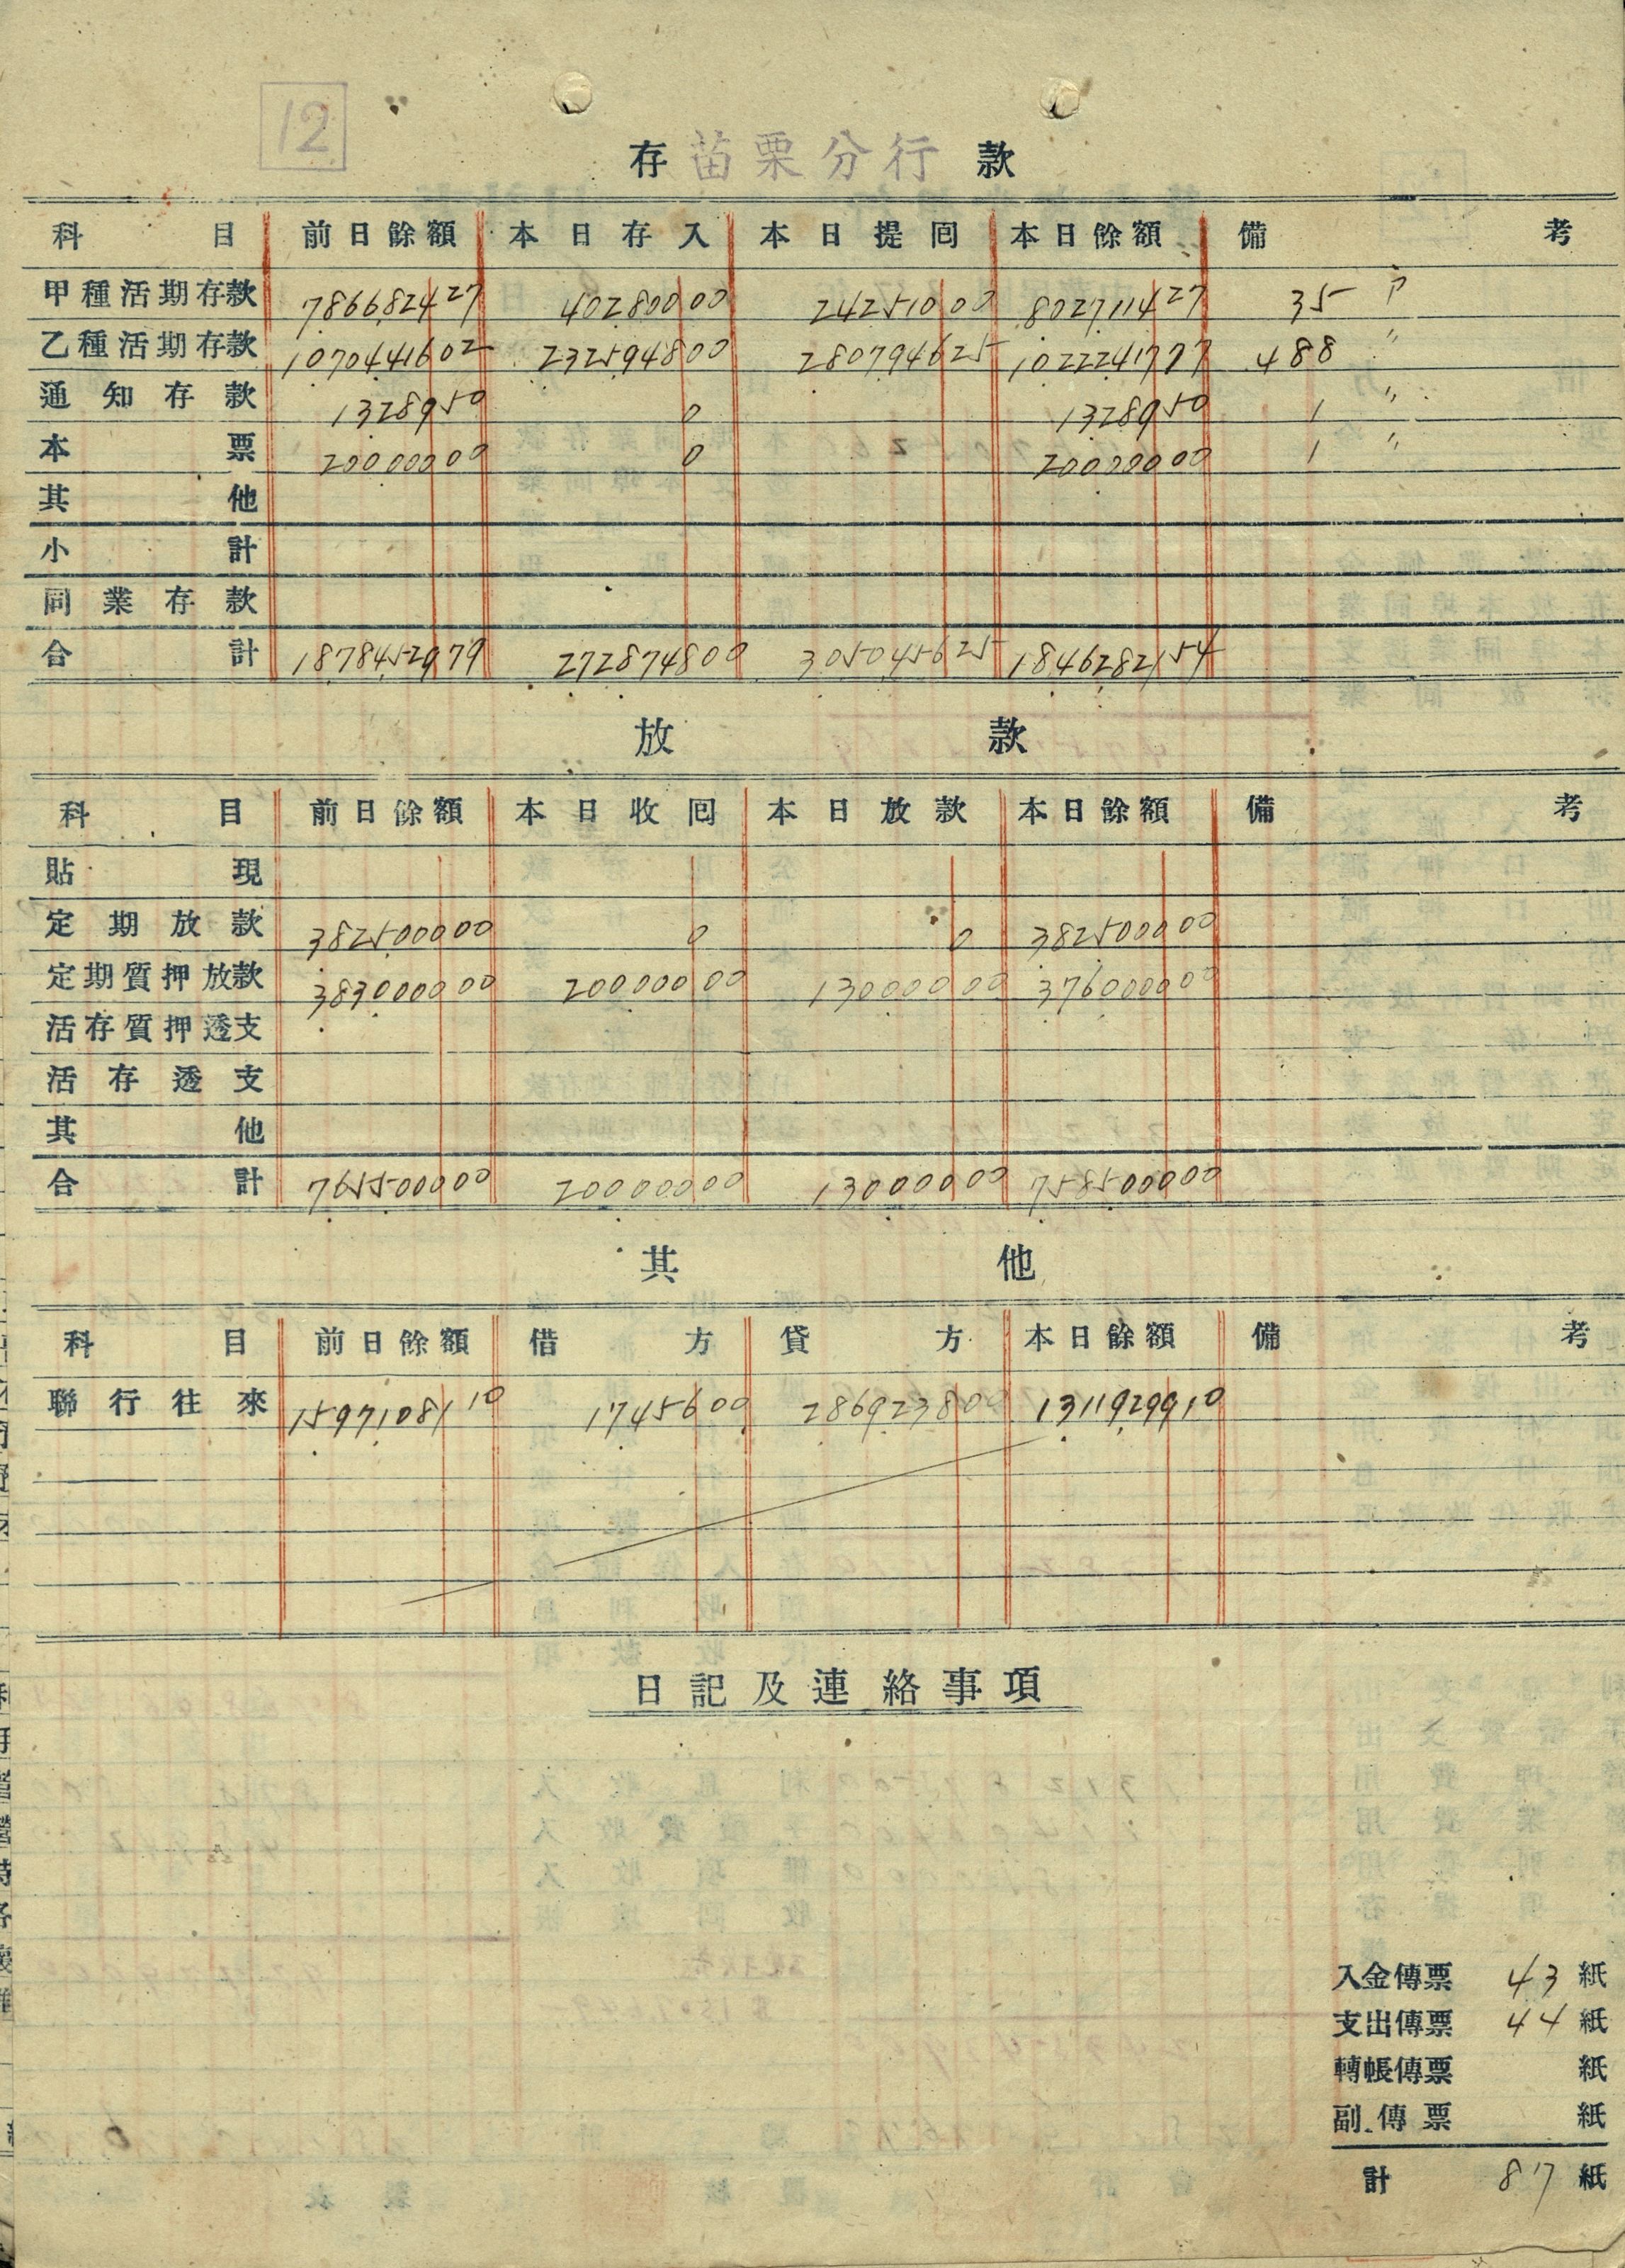 12
存 苗栗分行 款
科目 前日餘額 本日存入 本日提回 本日餘額 備考
甲種活期存款 7866824 27 402800 00 242510 00 8027114 27 35 P
乙種活期存款 10704416 02 2325948 00 2807946 25 10222417 77 488 〃
通知存款 13289 50 0 13289 50 1 〃
本票 200000 00 0 200000 00 1 〃
其他
小計
同業存款
合計 18784529 79 2728748 00 3050456 25 18462821 54
放款
科目 前日餘額 本日收回 本日放款 本日餘額 備考
貼現
定期放款 3825000 00 0 0 3825000 00
定期質押放款 3830000 00 200000 00 130000 00 3760000 00
活存質押透支
活存透支
其他
合計 7655000 00 200000 00 130000 00 7585000 00
其他
科目 前日餘額 借方 貸方 本日餘額 備考
聯行往來 15971081 10 17456 00 2869238 00 13119299 10
日記及連絡事項
入金傳票 43 紙
支出傳票 44 紙
轉帳傳票 紙
副傳票 紙
計 87 紙